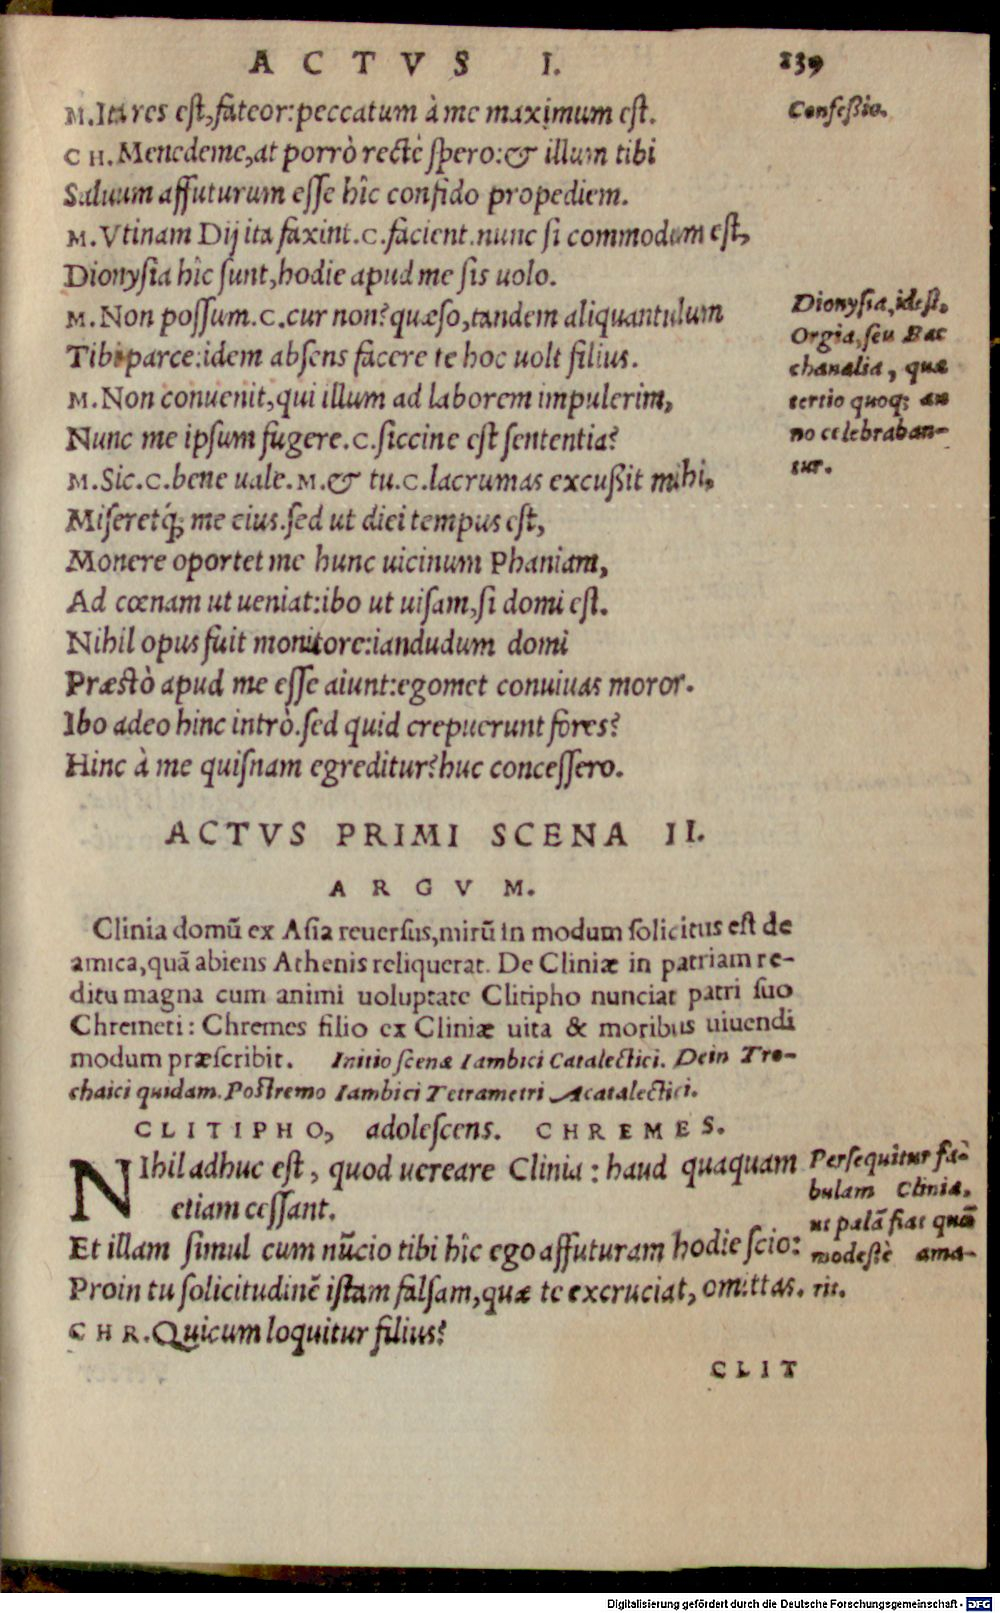 ACTVS I. 139
M. Ita res est, fateor: peccatum à me maximum est.
Confeßio.
CH. Menedeme, at porrò rectè spero: & illum tibi
Saluum affuturum esse hîc confido propediem.
M. Vtinam Dij ita faxint. C. facient. nunc si commodum est,
Dionysia hîc sunt, hodie apud me sis uolo.
M. Non possum. C. cur non? quæso, tandem aliquantulum
Tibi parce: idem absens facere te hoc uolt filius.
M. Non conuenit, qui illum ad laborem impulerim,
Nunc me ipsum fugere. C. siccine est sententia?
M. Sic. C. bene uale. M. & tu. C. lacrumas excußit mihi,
Dionysia, idest,
Orgia, seu Bac
chanalia, quæ
tertio quoq; an
no celebraban-
tur.
Miseretq́; me eius. sed ut diei tempus est,
Monere oportet me hunc uicinum Phaniam,
Ad cœnam ut ueniat: ibo ut uisam, si domi est.
Nihil opus fuit monitore: iandudum domi
Præstò apud me esse aiunt: egomet conuiuas moror.
Ibo adeo hinc intrò. sed quid crepuerunt fores?
Hinc à me quisnam egreditur? huc concessero.
ACTVS PRIMI SCENA II.
ARGVM.
Clinia domũ ex Asia reuersus, mirũ in modum solicitus est de
amica, quã abiens Athenis reliquerat. De Cliniæ in patriam re-
ditu magna cum animi uoluptate Clitipho nunciat patri suo
Chremeti: Chremes filio ex Cliniæ uita & moribus uiuendi
modum præscribit. Initio scenæ Iambici Catalectici. Dein Tro-
chaici quidam. Postremo Iambici Tetrametri Acatalectici.
CLITIPHO, adolescens. CHREMES.
NIhil adhuc est, quod uereare Clinia: haud quaquam
etiam cessant.
Et illam simul cum nũcio tibi hîc ego affuturam hodie scio:
Proin tu solicitudinẽ istam falsam, quæ te excruciat, omittas.
Persequitur fa-
bulam Cliniæ,
ut palã fiat quã
modestè ama-
rit.
CHR. Quicum loquitur filius?
CLIT
Digitalisierung gefördert durch die Deutsche Forschungsgemeinschaft - DFG